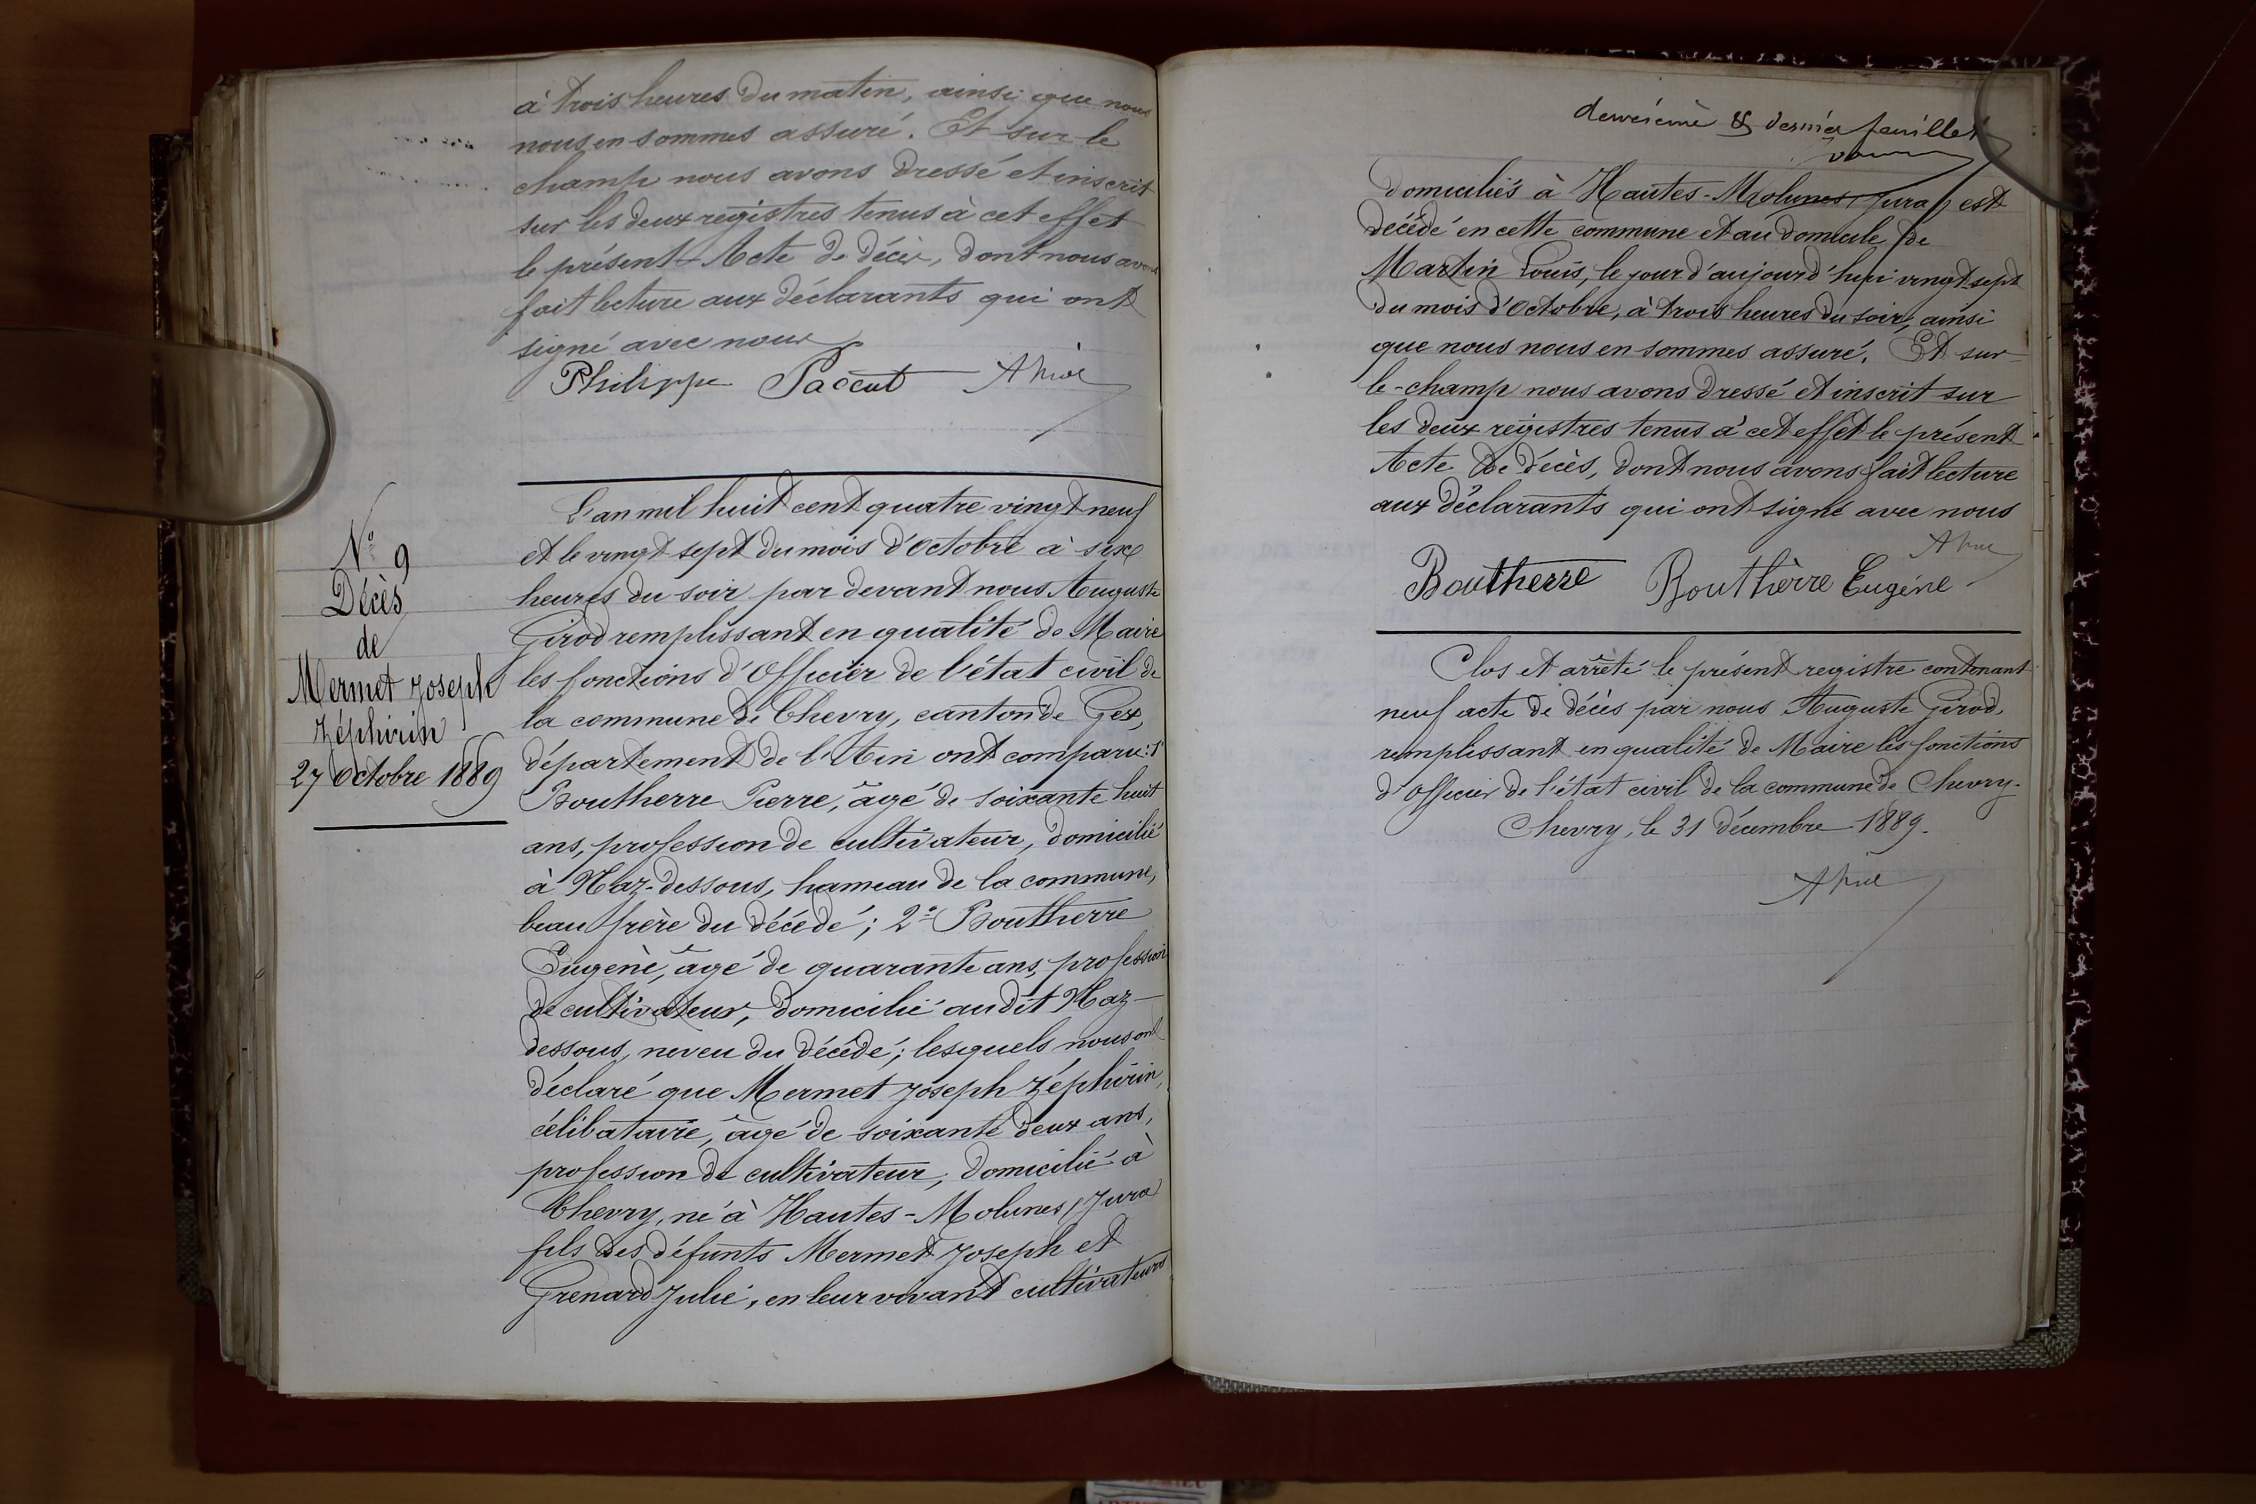 à trois heures du matin, ainsi que nous
nous en sommes assuré. Et sur le
champ nous avons dressé et inscrit
sur les deux registres tenus à cet effet
le présent Acte de décès, dont nous avons
fait lecture aux déclarants qui ont
signé avec nous
Philippe Paccut
N° 9
Décès
de
Mermet Joseph
Zéphirin
27 Octobre 1889
L'an mil huit cent quatre vingt neuf
et le vingt sept du mois d'Octobre à six
heures du soir par devant nous Auguste
Girod remplissant en qualité de Maire
les fonctions d'Officier de l'état civil de
la commune de Chevry, canton de Gex,
département de l'Ain ont comparu: 1°
Boutherre Pierre, âgé de soixante huit
ans, profession de cultivateur, domicilié
à Naz-dessous, hameau de la commune,
beau frère du décédé; 2° Boutherre
Eugène, âgé de quarante ans, profession
de cultivateur, domicilié au dit Naz-
dessous, neveu du décédé; lesquels nous ont
déclaré que Mermet Joseph Zéphirin,
célibataire, âgé de soixante deux ans,
profession de cultivateur, domicilié à
Chevry, né à Hautes-Molunes (Jura)
fils des défunts Mermet Joseph et
Grenard Julie, en leur vivant cultivateurs
deuxième & dernier feuillet
domiciliés à Hautes-Molunes (Jura) est
décédé en cette commune et au domicile de
Martin Louis, le jour d'aujourd'hui vingt-sept
du mois d'Octobre, à trois heures du soir, ainsi
que nous nous en sommes assuré. Et sur-
le-champ nous avons dressé et inscrit sur
les deux registres tenus à cet effet le présent
Acte de décès, dont nous avons fait lecture
aux déclarants qui ont signé avec nous
Boutherre Bouthèrre Eugène
Clos et arrêté le présent registre contenant
neuf acte de décès par nous Auguste Girod,
remplissant en qualité de Maire les fonctions
d'Officier de l'état civil de la commune de Chevry.
Chevry, le 31 décembre 1889.